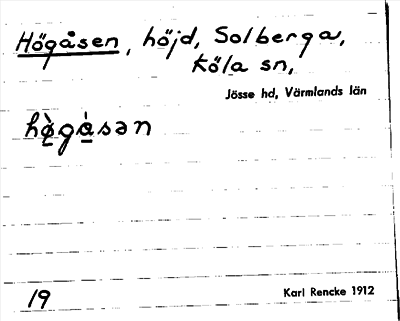 Högåsen, höjd, Solberga,
Köla sn,
Jösse hd, Värmlands län
hø̀gàsən
19
Karl Rencke 1912